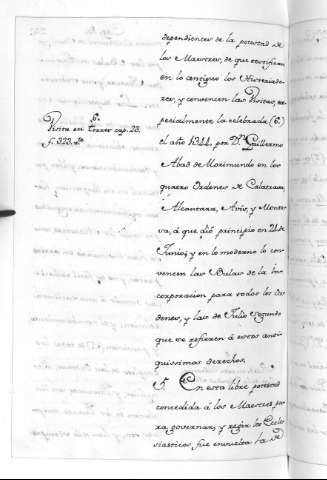 dependientes de la potestad de
los Maestres, de que certifican
en lo antiguo los
y convencen las Visitas, es
pecialmente la celebrada (6)
el año 1344. por Dn. Guillermo
Abad de Morimundo en las
quatro Ordenes de Calatrava,
Alcantara, Avis, y Montesa
a que dió principio en 24 de
Junio, y en lo moderno lo con
vencen las Bulas de la In
corporacion para todos los Or
denes, y las de Julio segundo
que se refieren á estos anti
quissimos derechos.
En esta libre potestad
concedida á los Maestres pa
ra governar, y regir los Ecle
siasticos fue embuelta la de
6.
Visita en cap. 23.
f. 323.